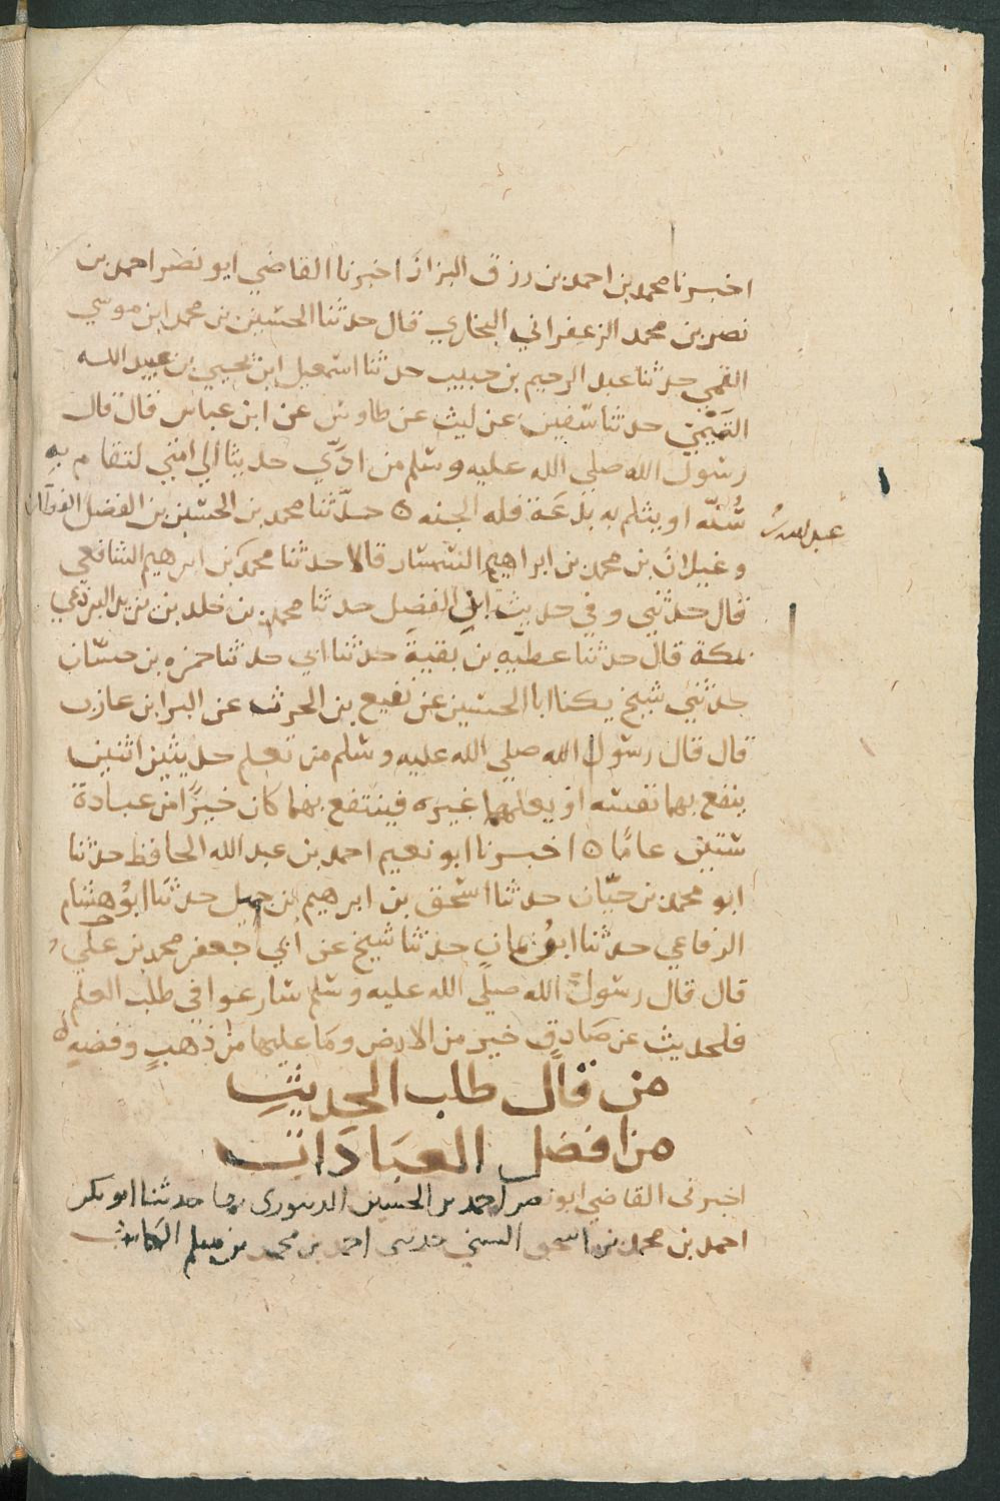 اخبرنا محمد بن احمد بن رزق البزاز اخبرنا القاضي ابو نصر احمد بن
نصر بن محمد الزعفراني البخاري قال حدثنا الحسين بن محمد ابن موسي
القمي حدثنا عبد الرحيم بن حبيب حدثنا اسمعيل ابن يحيي بن عبيد الله
التيمي حدثنا سفين عن ليث عن طاوس عن ابن عباس قال قال
رسول الله صلى الله عليه وسلم من ادّي حديثا الي امتي لتقام به
سُنّه او يثلم به بدعَة فله الجنه ه حدّثنا محمد بن الحسين بن الفضل القطان
عبد الله
وغيلان بن محمد بن ابراهيم السمسار قالا حدثنا محمد بن ابرهيم الشافعي
قال حدثني وفي حديث ابن الفضل حدثنا محمد بن خلد بن يزيد البرذعي
بمكة قال حدثنا عطيّه بن بقيةَ حدثنا ابي حدثنا حمزه بن حسّان
حدثني شيخ يكنا ابا الحسين عن نفيع بن الحرث عن البرا بن عازب
قال قال رسول الله صلي الله عليه وسلم من تعلم حديثين اثنين
ينفع بهما نفسه او يعلمهما غيره فينتفع بهما كان خيرًا من عبادة
ستين عامًا ه اخبرنا ابو نعيم احمد بن عبد الله الحافظ حدثنا
ابو محمد بن حيّان حدثنا اسحق بن ابرهيم بن جميل حدثنا ابوُ هشام
الرفاعي حدثنا ابن يمان حدثنا شيخ عن ابي جعفر محمد بن علي
قال قال رسول الله صلّي الله عليه وسلم سارعوا في طلب العلم
فلحديث عن صَادقٍ خير من الارض ومَا عليها من ذهبٍ وفضهٍ ه
من قال طلب الحديثِ
من افضل العبَادَات
اخبرني القاضي ابو نصر احمد بن الحسين الدينوري بها حدثنا ابو بكر
احمد بن محمد بن اسحق السني حدثني احمد بن محمد بن